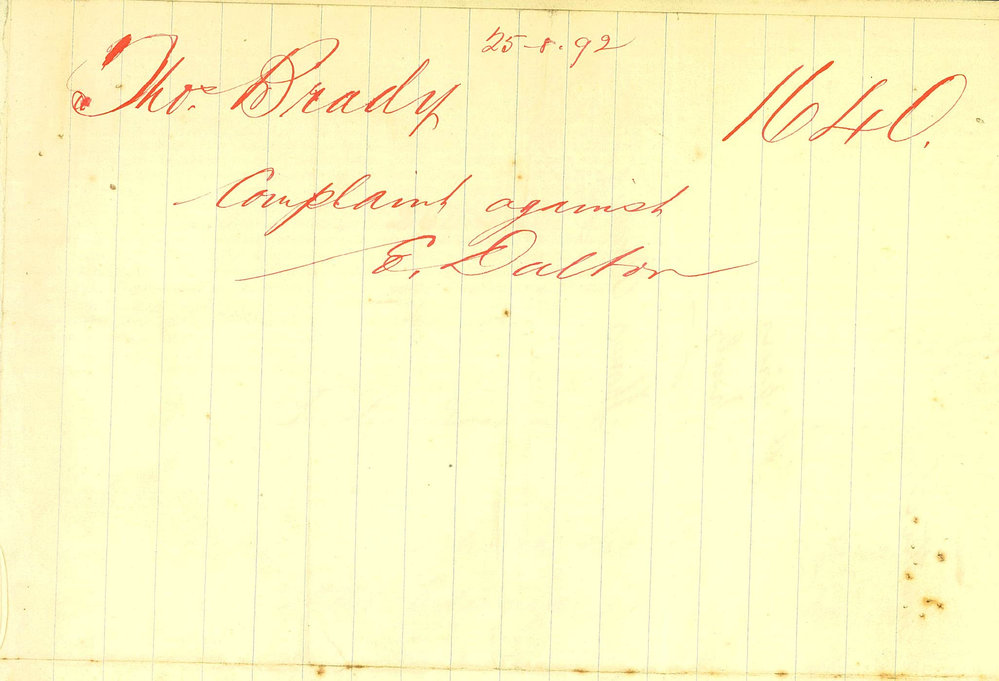 25-8.92
Thos. Brady 1640.
Complaint against
E. Dalton